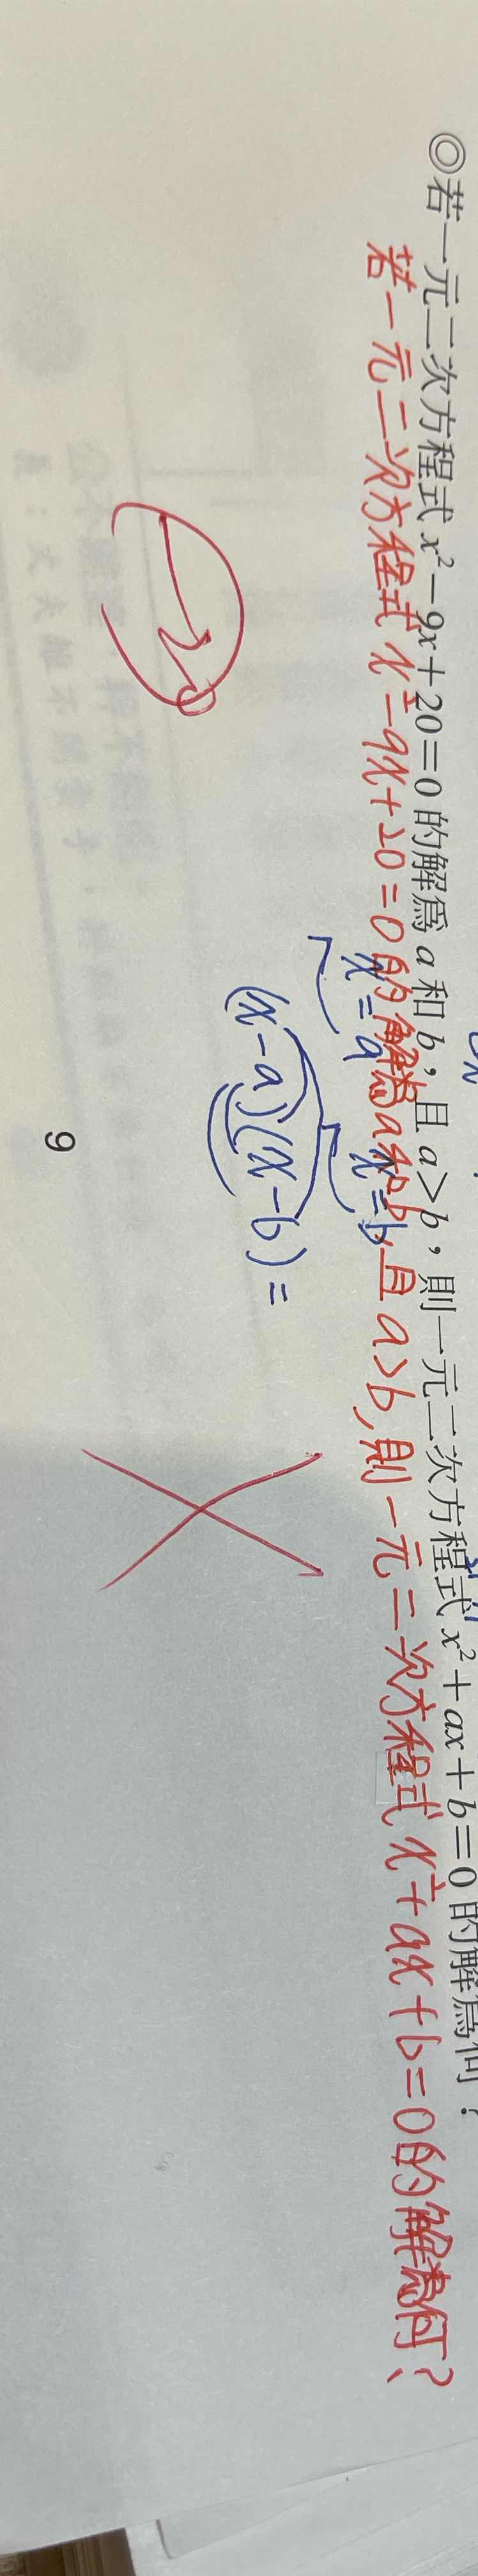 ◎若一元二次方程式 x²－9x＋20＝0 的解為 a 和 b，且 a＞b，則一元二次方程式 x²＋ax＋b＝0 的解為何？
若一元二次方程式 x²－9x＋20＝0的解為a和b,且a>b,則一元二次方程式x²+ax+b=0的解為何?
x=a x=b
(x-a)(x-b)=
9